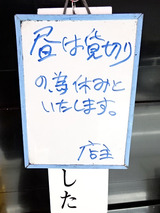 昼は貸切り
の為休みと
いたします。
店主
した